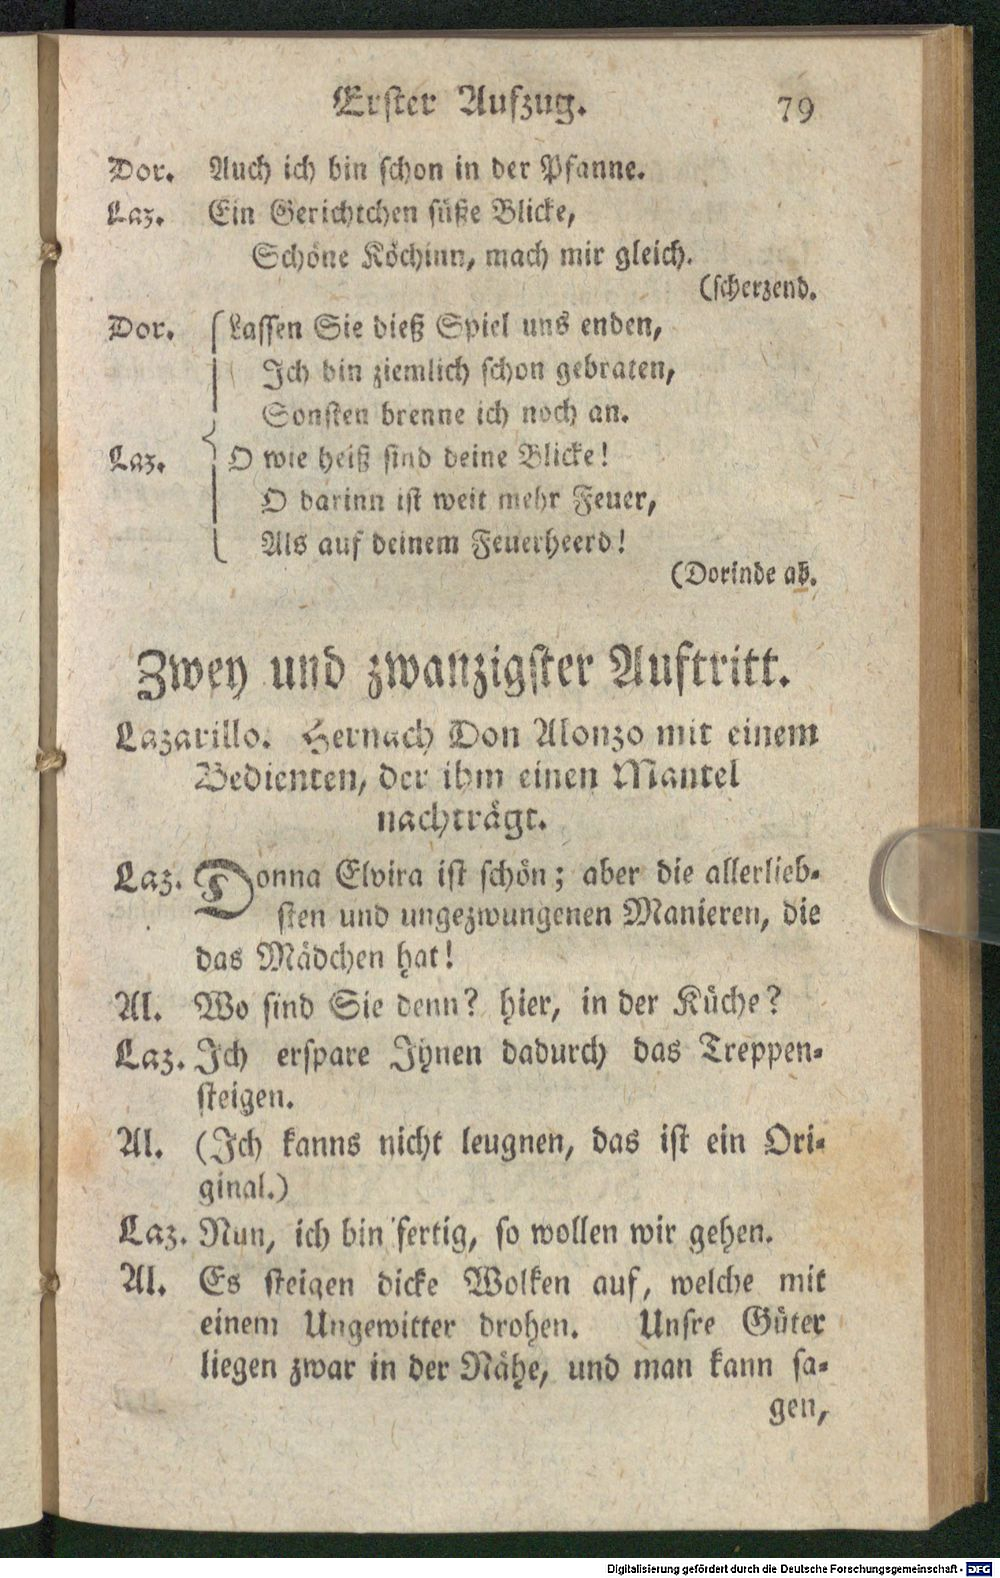 Erster Aufzug. 79
Dor. Auch ich bin schon in der Pfanne.
Laz. Ein Gerichtchen süße Blicke,
Schöne Köchinn, mach mir gleich.
(scherzend.
Dor. Lassen Sie dieß Spiel uns enden,
Ich bin ziemlich schon gebraten,
Sonsten brenne ich noch an.
Laz. O wie heiß sind deine Blicke!
O darinn ist weit mehr Feuer,
Als auf deinem Feuerheerd!
(Dorinde ab.
Zwey und zwanzigster Auftritt.
Lazarillo. Hernach Don Alonzo mit einem
Bedienten, der ihm einen Mantel
nachträgt.
Laz. Donna Elvira ist schön; aber die allerlieb-
sten und ungezwungenen Manieren, die
das Mädchen hat!
Al. Wo sind Sie denn? hier, in der Küche?
Laz. Ich erspare Ihnen dadurch das Treppen-
steigen.
Al. (Ich kanns nicht leugnen, das ist ein Ori-
ginal.)
Laz. Nun, ich bin fertig, so wollen wir gehen.
Al. Es steigen dicke Wolken auf, welche mit
einem Ungewitter drohen. Unsre Güter
liegen zwar in der Nähe, und man kann sa-
gen,
Digitalisierung gefördert durch die Deutsche Forschungsgemeinschaft - DFG